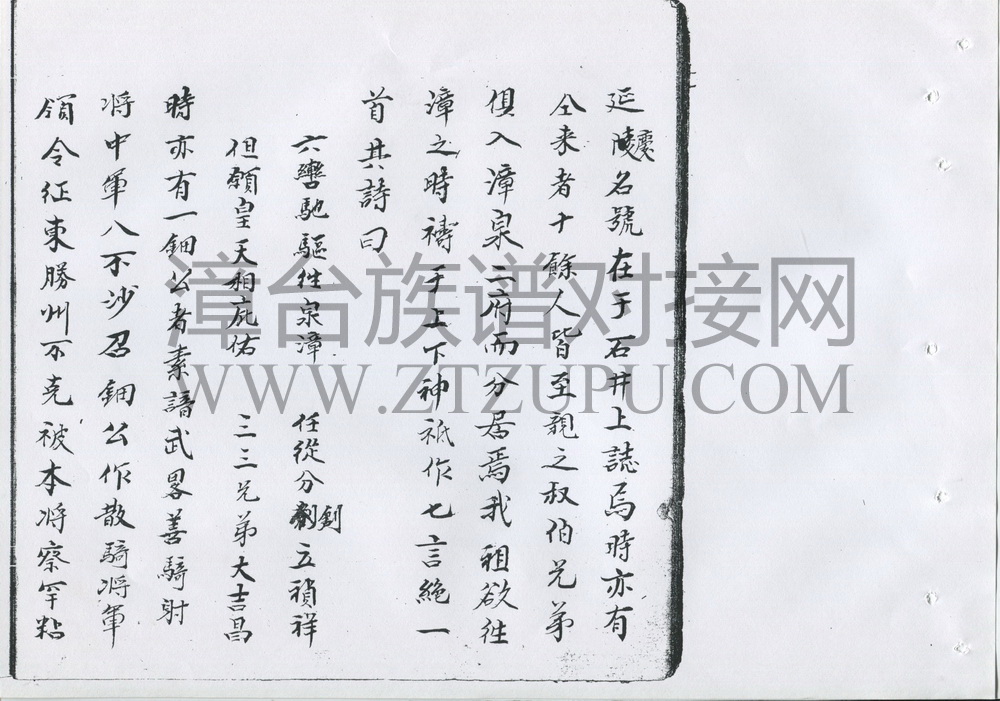 延陵慶名號在于石井上誌焉時亦有
仝来者十餘人皆至親之叔伯兄弟
俱入漳泉二府而分居焉我祖欲往
漳之時禱于上下神祗作七言絶一
首其詩曰
六轡馳驅往泉漳 任從分創立禎祥
但願皇天相庇佑 三三兄弟大吉昌
時亦有一鈿公者素諳武畧善騎射
将中軍八不沙召鈿公作散騎将軍
領令征東勝州不克被本将察罕粘
漳台族谱对接网
WWW.ZTZUPU.COM